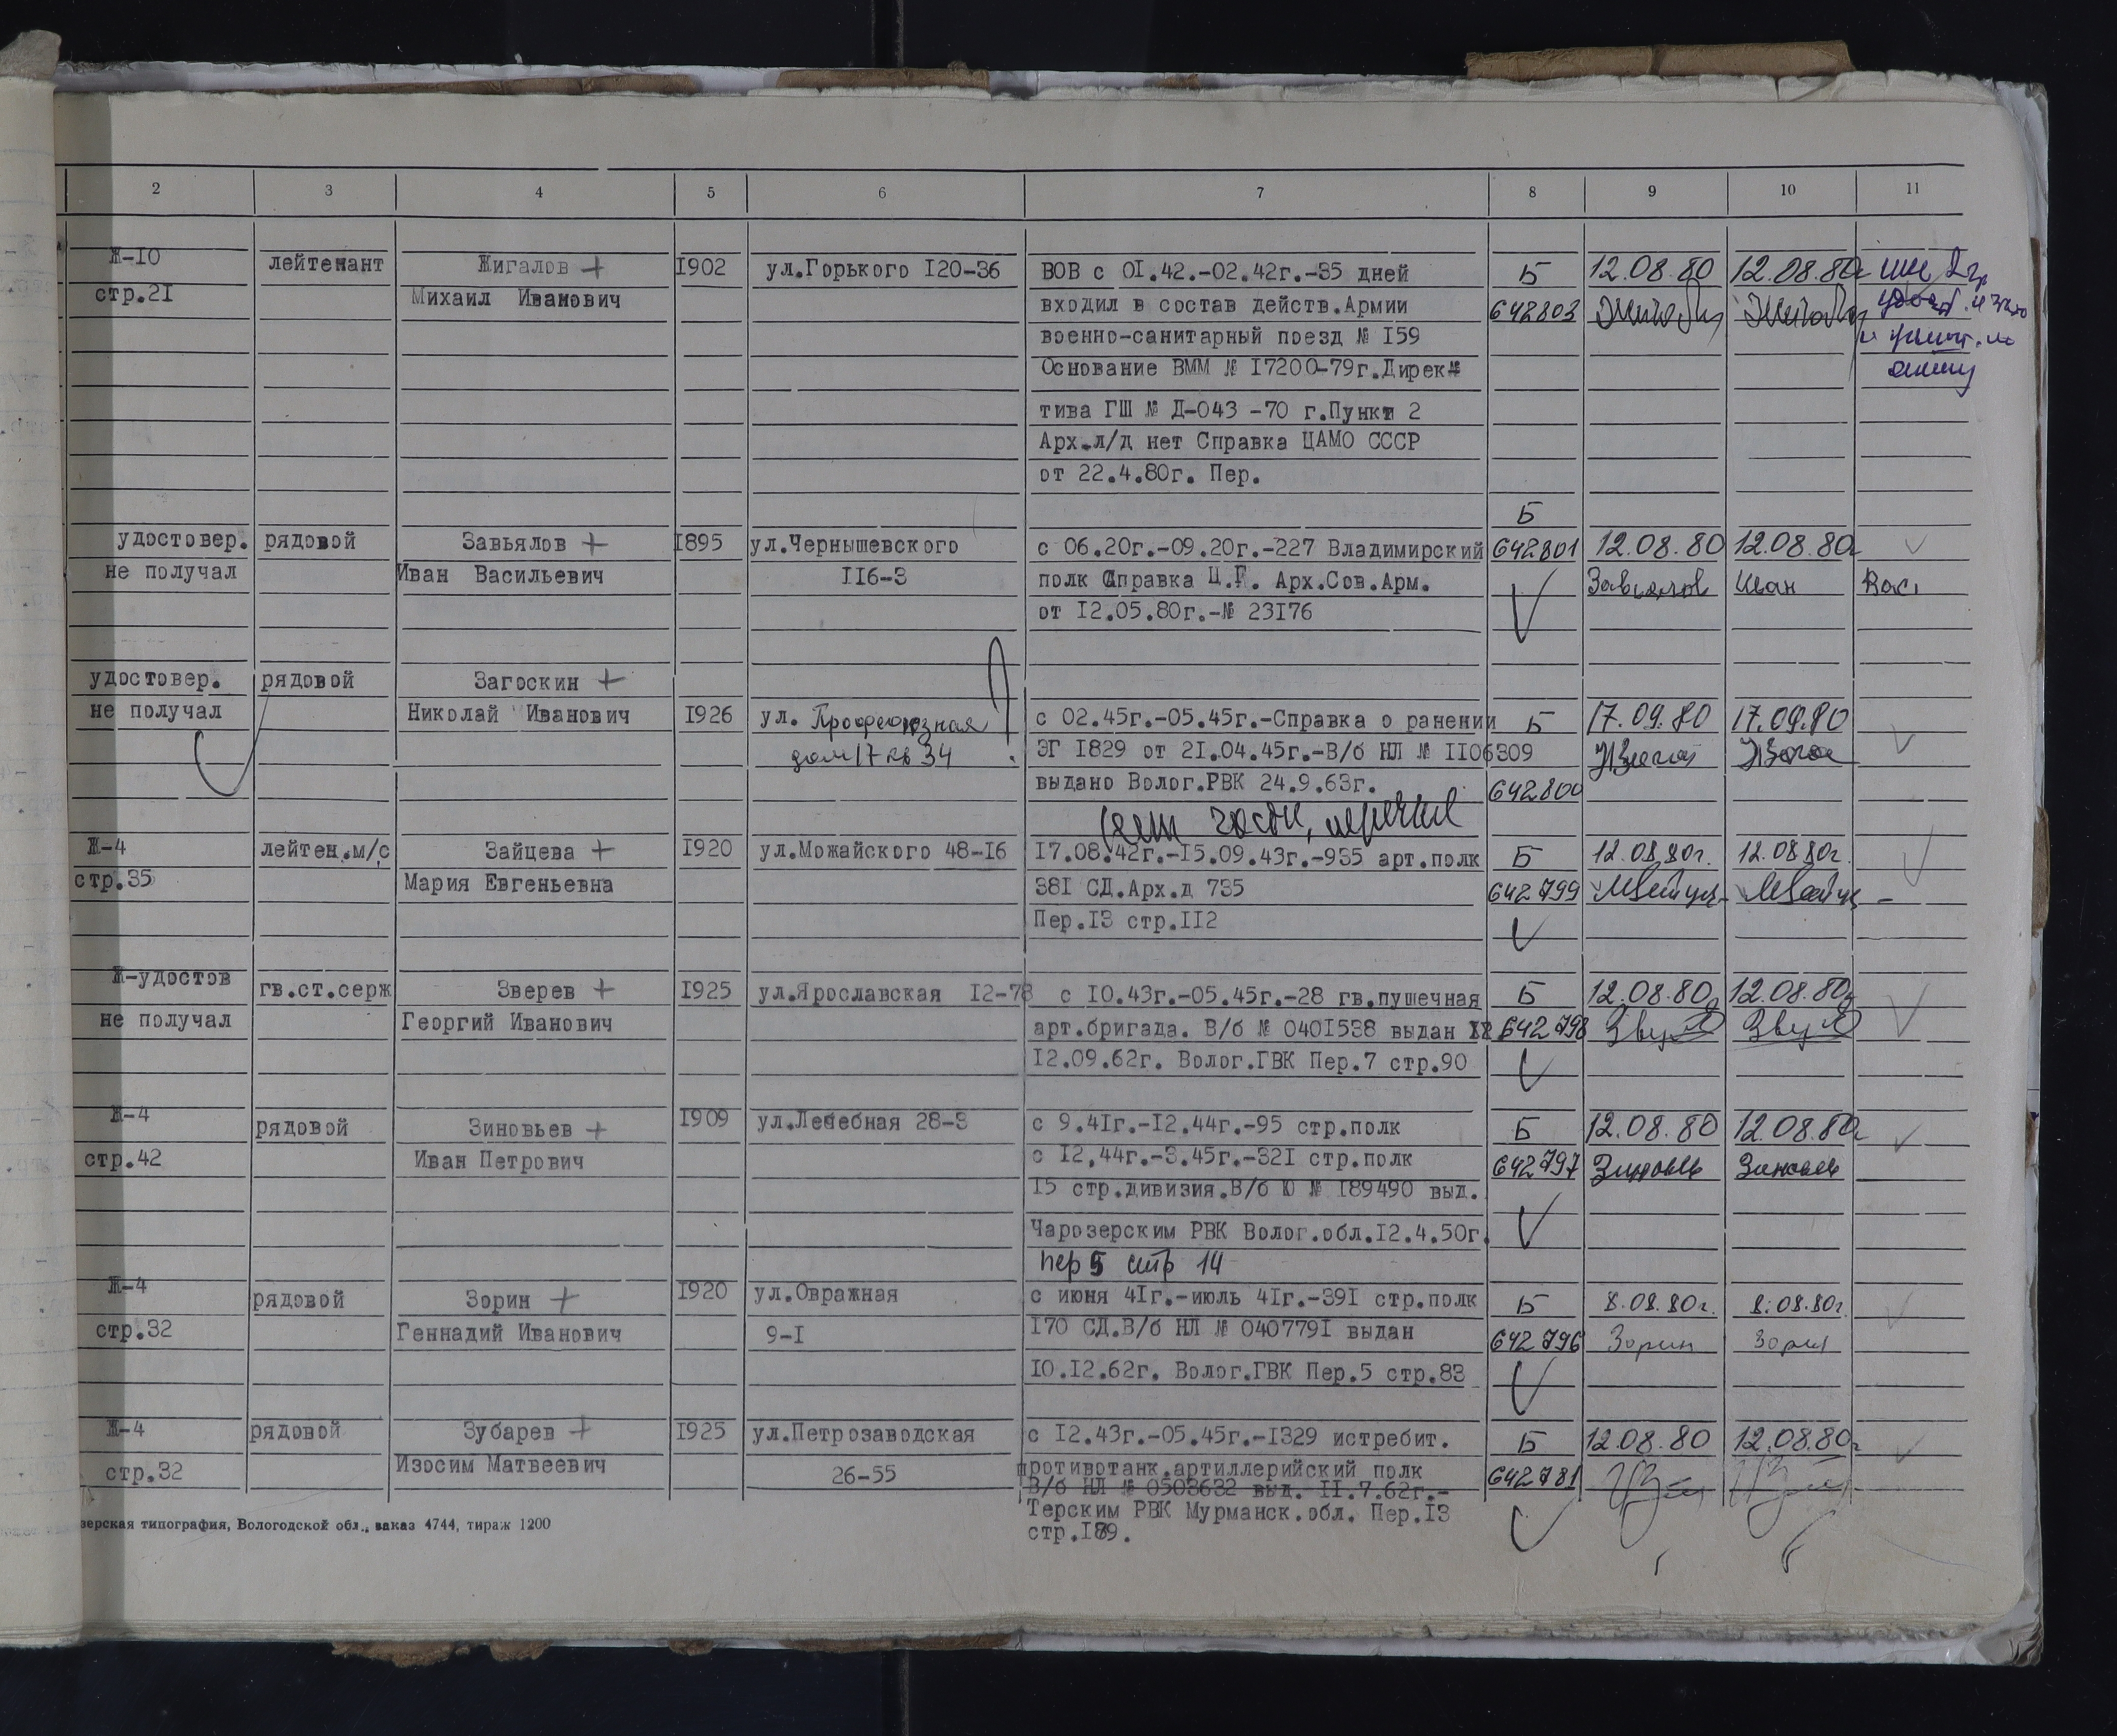 2 3 4 5 6 7 8 9 10 11
Ж-10 лейтенант Жигалов + 1902 ул.Горького 120-36 ВОВ с 01.42.-02.42г.-35 дней Б 12.08.80 12.08.80г
стр.21 Михаил Иванович входил в состав действ.Армии 642803
военно-санитарный поезд № 159
Основание ВММ № 17200-79г.Дирек
тива ГШ № Д-043 -70 г.Пункт 2
Арх.л/д нет Справка ЦАМО СССР
от 22.4.80г. Пер.
Б
удостовер. рядовой Завьялов + 1895 ул.Чернышевского с 06.20г.-09.20г.-227 Владимирский 642801 12.08.80 12.08.80г
не получал Иван Васильевич 116-3 полк Справка Ц.Г. Арх.Сов.Арм. Завьялов Иван Вас.
от 12.05.80г.-№ 23176
удостовер. рядовой Загоскин +
не получал Николай Иванович 1926 ул. Профсоюзная с 02.45г.-05.45г.-Справка о ранении Б 17.09.80 17.09.80
дом 17 кв 34 ЭГ 1829 от 21.04.45г.-В/б НЛ № 1106309
выдано Волог.РВК 24.9.63г. 642800
Ж-4 лейтен.м/с Зайцева + 1920 ул.Можайского 48-16 17.08.42г.-15.09.43г.-935 арт.полк Б 12.08.80г. 12.08.80г.
стр.35 Мария Евгеньевна 381 СД.Арх.д 735 642799
Пер.13 стр.112
Ж-удостов гв.ст.серж Зверев + 1925 ул.Ярославская 12-78 с 10.43г.-05.45г.-28 гв.пушечная Б 12.08.80г 12.08.80г
не получал Георгий Иванович арт.бригада. В/б № 0401538 выдан 642798
12.09.62г. Волог.ГВК Пер.7 стр.90
Ж-4 рядовой Зиновьев + 1909 ул.Лечебная 28-3 с 9.41г.-12.44г.-95 стр.полк Б 12.08.80 12.08.80г
стр.42 Иван Петрович с 12,44г.-3.45г.-321 стр.полк 642797 Зиновьев Зиновьев
15 стр.дивизия.В/б Ю № 189490 выд.
Чарозерским РВК Волог.обл.12.4.50г.
пер 5 стр 14
Ж-4 рядовой Зорин + 1920 ул.Овражная с июня 41г.-июль 41г.-391 стр.полк Б 8.08.80г. 8.08.80г.
стр.32 Геннадий Иванович 9-1 170 СД.В/б НЛ № 0407791 выдан 642796 Зорин Зорин
10.12.62г. Волог.ГВК Пер.5 стр.83
Ж-4 рядовой Зубарев + 1925 ул.Петрозаводская с 12.43г.-05.45г.-1329 истребит. Б 12.08.80 12.08.80г
стр.32 Изосим Матвеевич 26-55 противотанк.артиллерийский полк 642781
В/б НЛ № 0503632 выд. 11.7.62г.-
Терским РВК Мурманск.обл. Пер.13
стр.189.
зерская типография, Вологодской обл., заказ 4744, тираж 1200